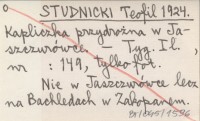 STUDNICKI Teofil 1924.
Kapliczka przydrożna w Ja-
szczurówce. — Tyg. Il.,
nr : 149, tylko fot.
Nie w Jaszczurówce lecz
na Bachledach w Zakopanem.